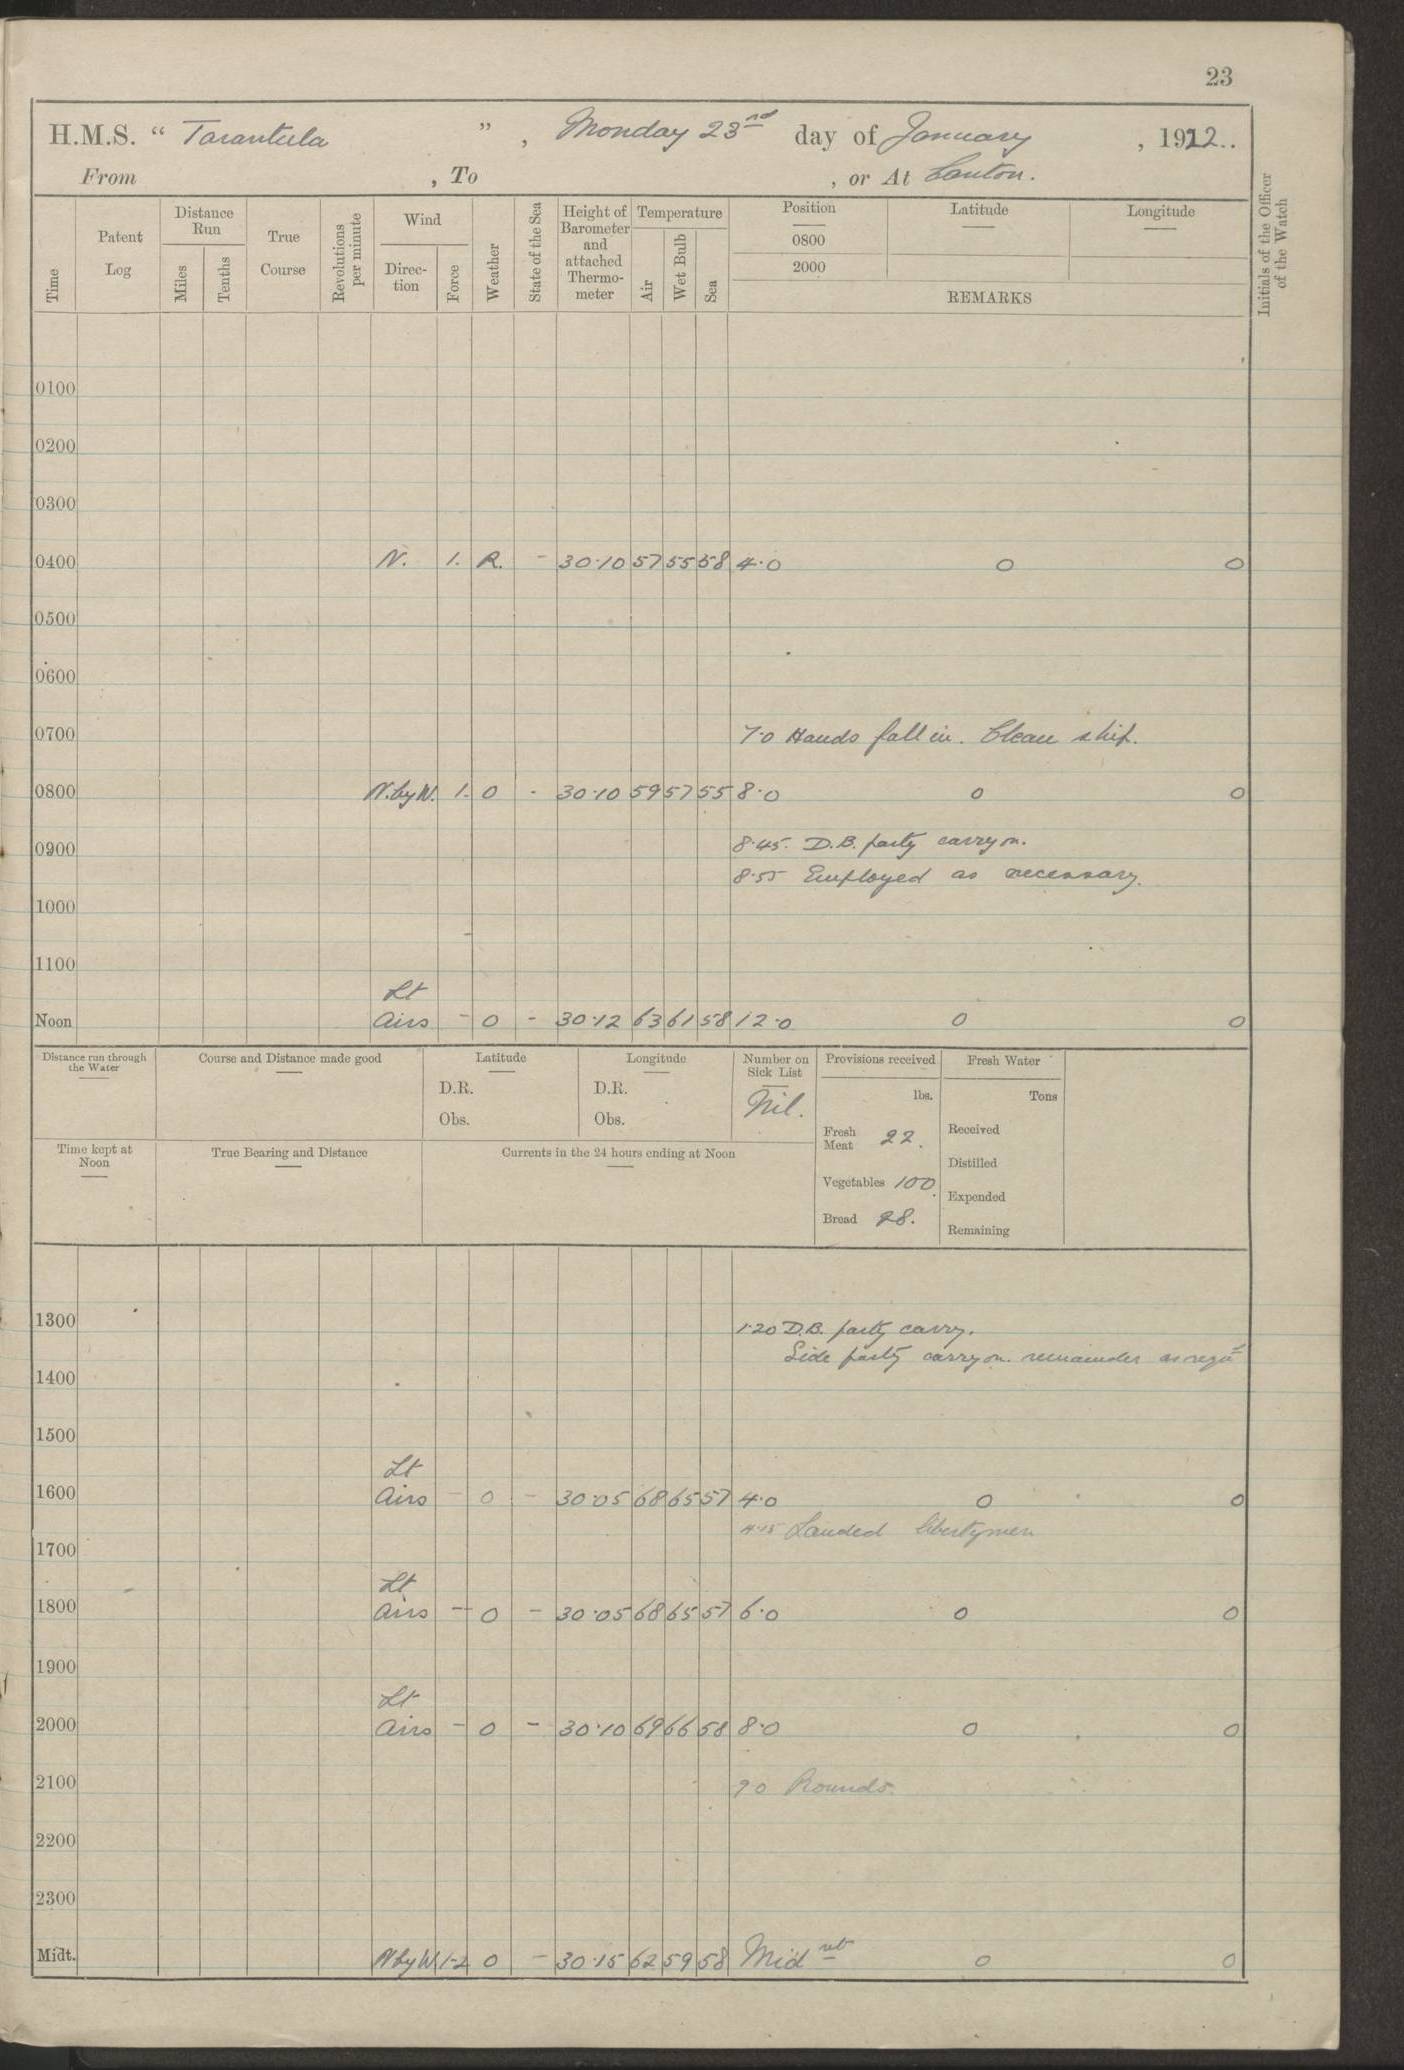 23
H.M.S. “ Tarantula ” , Monday 23rd day of January , 1922..
From , To , or At Canton.
Time
Patent Log
Distance Run
Miles Tenths
True Course
Revolutions per minute
Wind
Direction Force
Weather
State of the Sea
Height of Barometer and attached Thermometer
Temperature
Air Wet Bulb Sea
Position Latitude Longitude
0800
2000
REMARKS
Initials of the Officer of the Watch
0100
0200
0300
0400 N. 1. R. - 30.10 57 55 58 4.0 0 0
0500
0600
0700 7.0 Hands fall in. Clean ship.
0800 N.byW. 1. 0 - 30.10 59 57 55 8.0 0 0
8.45. D.B. party carry on.
0900
8.55 Employed as necessary.
1000
1100
Lt
Noon Airs - 0 - 30.12 63 61 58 12.0 0 0
Distance run through the Water
Course and Distance made good
Latitude
D.R.
Obs.
Longitude
D.R.
Obs.
Number on Sick List
Nil.
Provisions received
lbs.
Fresh Meat 22.
Vegetables 100.
Bread 28.
Fresh Water
Tons
Received
Distilled
Expended
Remaining
Time kept at Noon
True Bearing and Distance
Currents in the 24 hours ending at Noon
1300 1.20 D.B. party carry.
Side party carry on. remainder as reqd
1400
1500
Lt
1600 Airs - 0 - 30.05 68 65 57 4.0 0 0
4.15 Landed libertymen
1700
Lt
1800 Airs - 0 - 30.05 68 65 57 6.0 0 0
1900
Lt
2000 Airs - 0 - 30.10 69 66 58 8.0 0 0
2100 9.0 Rounds.
2200
2300
Midt. NbyW 1-2 0 - 30.15 62 59 58 Mid 0 0